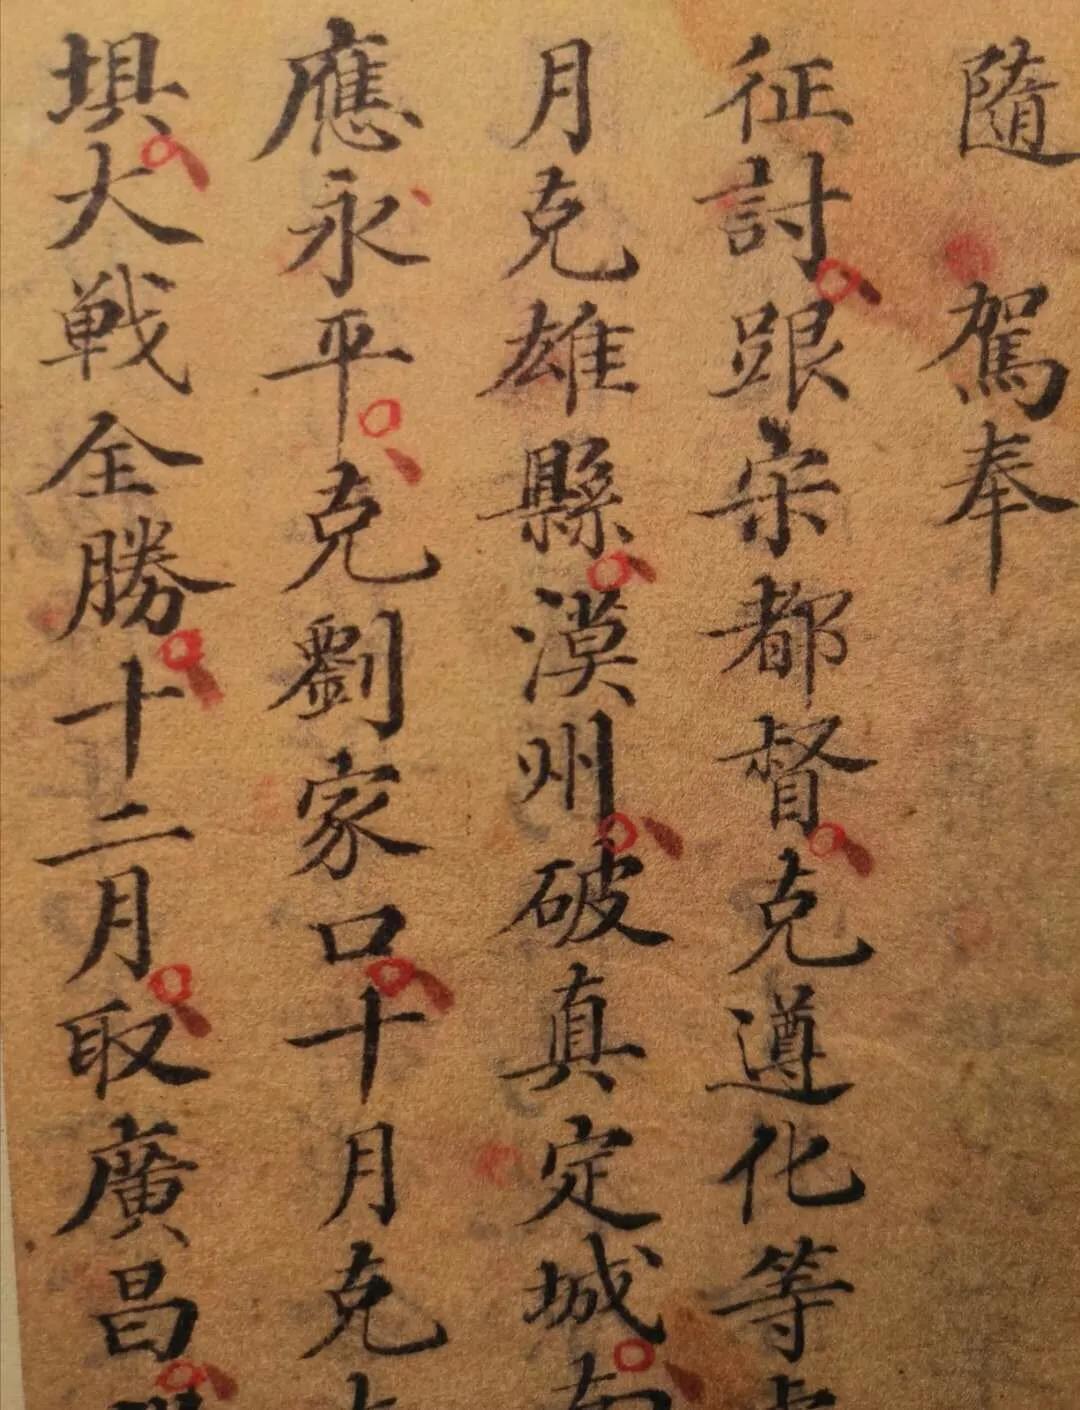 隨 駕奉
征討跟宋都督克遵化等
月克雄縣漠州破真定城
應永平克劉家口十月克
埧大戦全勝十二月取廣昌